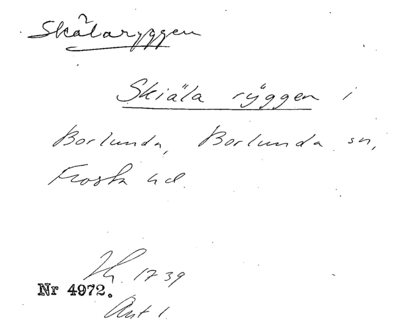 Skälaryggen
Skiäla rÿggen i
Borlunda, Borlunda sn,
Frosta hd.
1739
Nr 4972.
Akt 1.